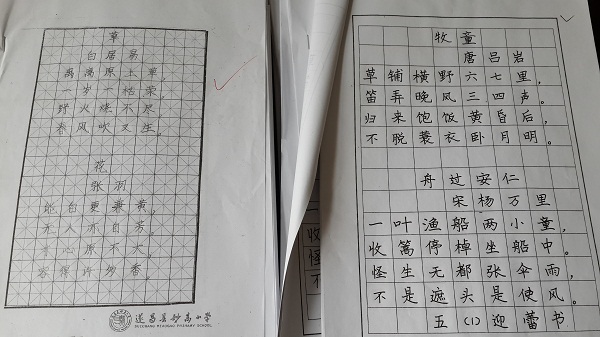 草
白居易
离离原上草，
一岁一枯荣
野火烧不尽
春风吹又生。
花
张羽
能白更兼黄，
无人亦自芳
寸心原不大，
容得许多香。
遂昌县妙高小学
SUICHANG MIAOGAO PRIMARY SCHOOL
收
怪
不
牧童
唐吕岩
草铺横野六七里，
笛弄晚风三四声。
归来饱饭黄昏后，
不脱蓑衣卧月明。
舟过安仁
宋杨万里
一叶渔船两小童，
收篙停棹坐船中。
怪生无都张伞雨，
不是遮头是使风。
五(1)迎蕾书